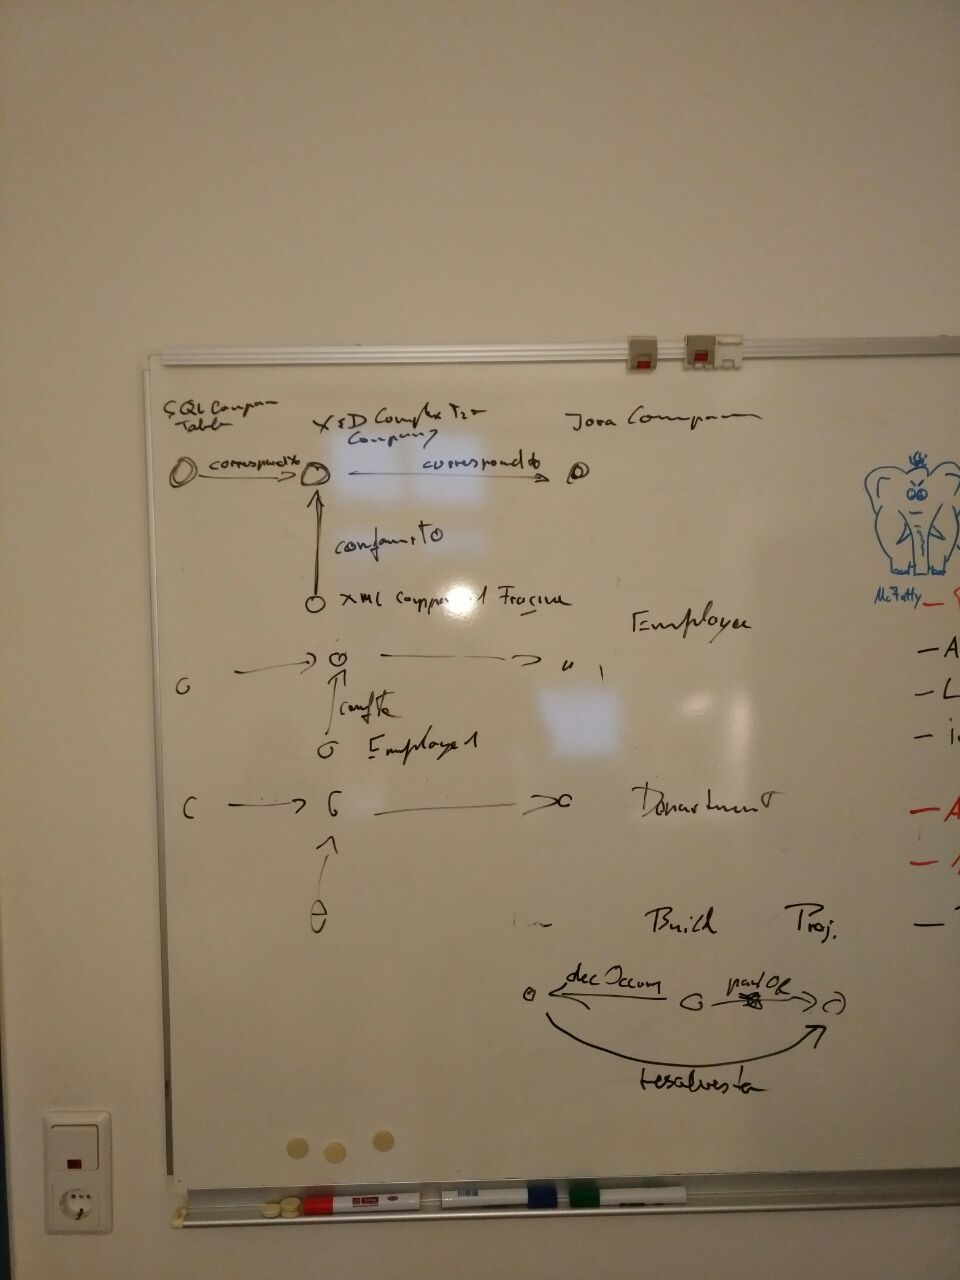 SQL Company
Table
XSD Complex Type
Company
Java Company
correspondsTo
correspondsTo
conformsTo
XML Company 1 Fragment
Employee
McFatty
confTo
Employee 1
Department
Build Proj.
decOccurs
partOf
resolvesTo